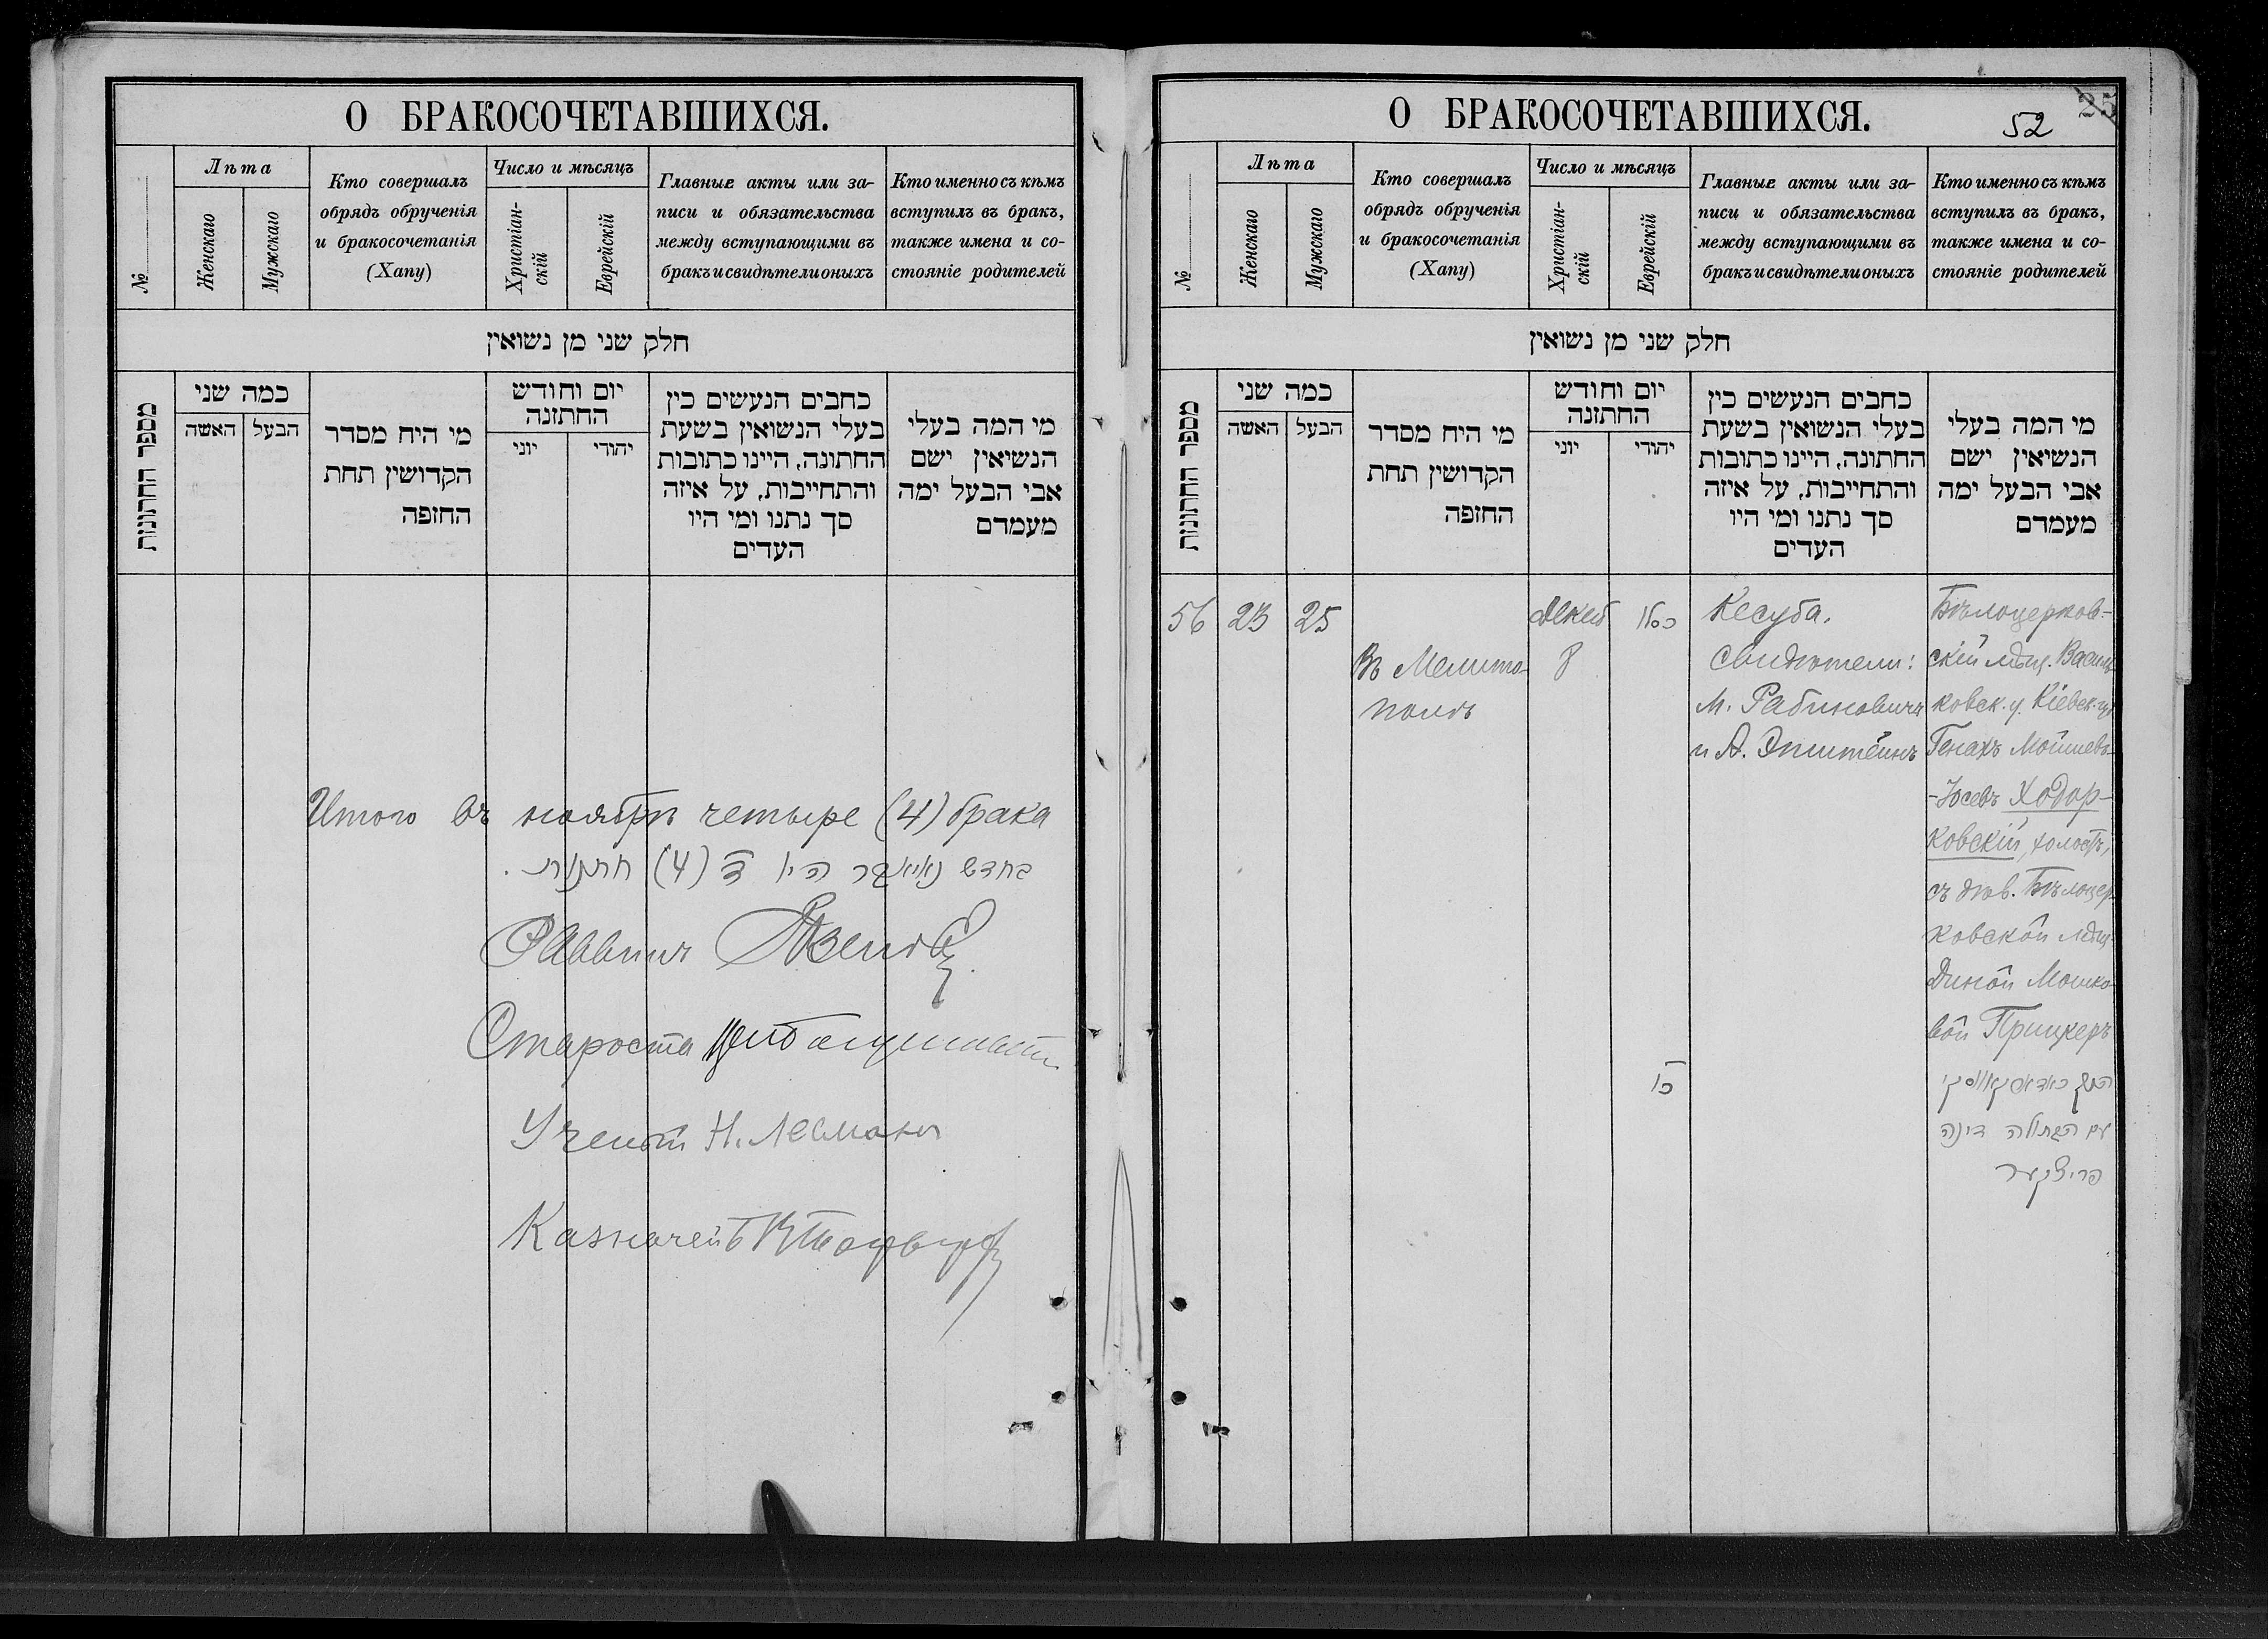 О БРАКОСОЧЕТАВШИХСЯ.
№
Лѣта
Женскаго
Мужскаго
Кто совершалъ
обрядъ обрученія
и бракосочетанія
(Хапу)
Число и мѣсяцъ
Христіан-
скій
Еврейскій
Главные акты или за-
писи и обязательства
между вступающими въ
бракъ и свидѣтели оныхъ
Кто именно съ кѣмъ
вступилъ въ бракъ,
также имена и со-
стояніе родителей
חלק שני מן נשואין
מספר החתונות
כמה שני
האשה
הבעל
מי היח מסדר
הקדושין תחת
החופה
יום וחודש
החתונה
יוני
יהודי
כחבים הנעשים כין
בעלי הנשואין בשעת
החתונה, היינו כתובות
והתחייבות, על איזה
סך נתנו ומי היו
העדים
מי המה בעלי
הנשיאין ישם
אבי הבעל ימה
מעמדם
Итого въ ноябрѣ четыре (4) брака
בחדש נאיאבר היו ד (4) חתנות.
Раввинъ
Староста
Ученый Н. Лесманъ
Казначей
О БРАКОСОЧЕТАВШИХСЯ.
52
25
№
Лѣта
Женскаго
Мужскаго
Кто совершалъ
обрядъ обрученія
и бракосочетанія
(Хапу)
Число и мѣсяцъ
Христіан-
скій
Еврейскій
Главные акты или за-
писи и обязательства
между вступающими въ
бракъ и свидѣтели оныхъ
Кто именно съ кѣмъ
вступилъ въ бракъ,
также имена и со-
стояніе родителей
חלק שני מן נשואין
מספר החתונות
כמה שני
האשה
הבעל
מי היח מסדר
הקדושין תחת
החופה
יום וחודש
החתונה
יוני
יהודי
כחבים הנעשים כין
בעלי הנשואין בשעת
החתונה, היינו כתובות
והתחייבות, על איזה
סך נתנו ומי היו
העדים
מי המה בעלי
הנשיאין ישם
אבי הבעל ימה
מעמדם
56
23
25
Въ Мелито-
полѣ
Декаб
8
כסלו
טו
Кесуба.
Свидѣтели:
М. Рабиновичъ
и А. Эпштейнъ
Бѣлоцерков-
скій мѣщ. Василь-
ковск. у. Кіевск. гу
Генахъ Мойшевъ-
-Іосевъ Ходор-
ковскій, холостъ,
съ дѣв. Бѣлоцер-
ковской мѣщ.
Диной Мошко-
вой Прицкеръ
עם הבתולה דינה
פריצקער